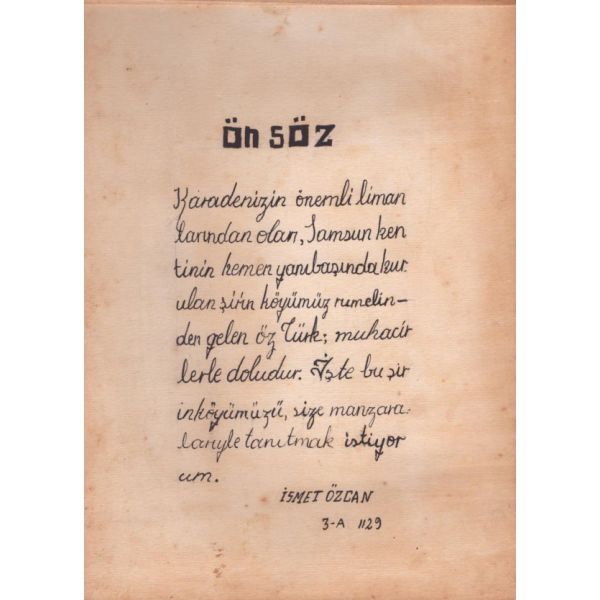 ÖN SÖZ
Karadenizin önemli liman
larından olan, Samsun ken
tinin hemen yanıbaşında kur
ulan şirin köyümüz rumelin-
den gelen öz Türk; muhacir
lerle doludur. İşte bu şir
in köyümüzü, size manzara
lariyle tanıtmak istiyor
um.
İSMET ÖZCAN
3-A 1129